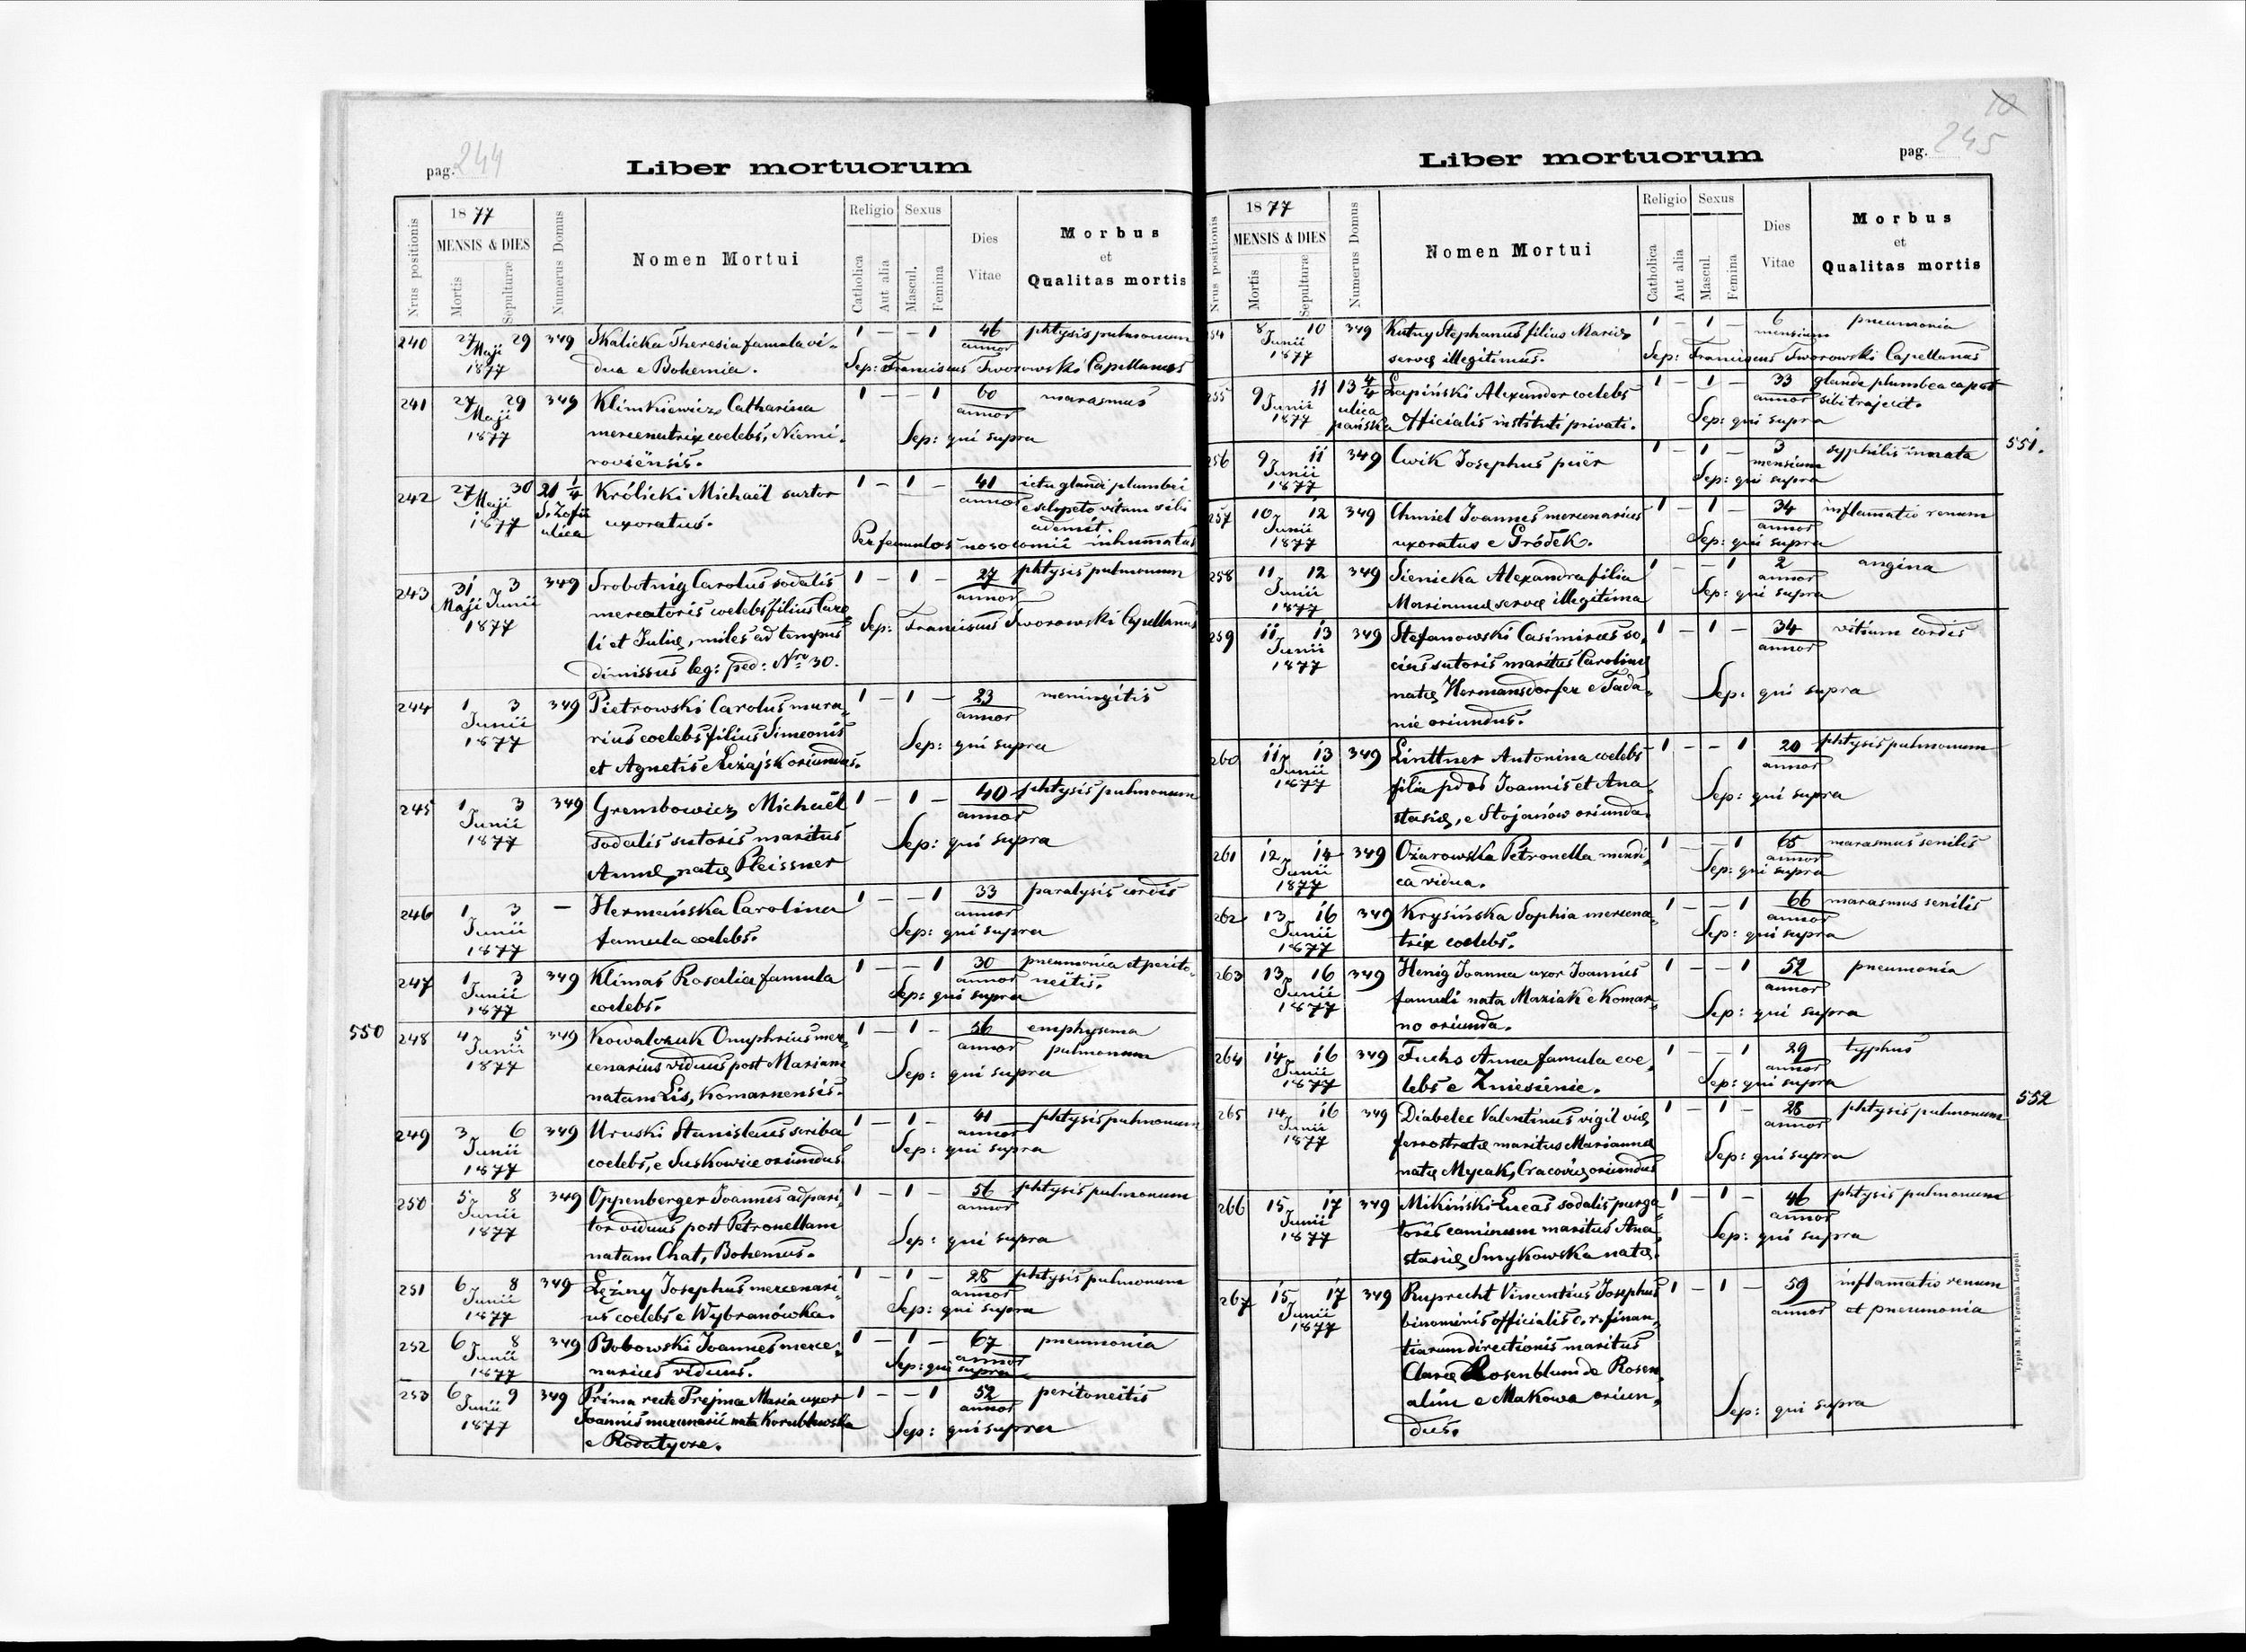 pag. 244
Liber mortuorum
Nrus positionis
1877
MENSIS & DIES
Mortis
Sepulturæ
Numerus Domus
Nomen Mortui
Religio
Catholica
Aut alia
Sexus
Mascul.
Femina
Dies
Vitae
Morbus
et
Qualitas mortis
240 27 29 349 Skalicka Theresia famula vi- 1 — — 1 46 phtysis pulmonum
Maji annor
1877 dua e Bohemia. Sep: Franciscus Tworowski Capellanus
241 27 29 349 Klimkiewicz Catharina 1 — — 1 60 marasmus
Maji annor
1877 mercenatrix coelebs, Niemi- Sep: qui supra
roviënsis.
242 27 30 21 1/4 Królicki Michaël sartor 1 — 1 — 41 ictu glandi plumbei
Maji S. Zofii annor e sclopeto vitam sibi
1877 ulica uxoratus. ademit.
Per famulos nosocomii inhumatus
243 31 3 349 Srobotnig Carolus sodalis 1 — 1 — 27 phtysis pulmonum
Maji Junii mercatoris coelebs filius Caro- annor
1877 li et Juliæ, miles ad tempus Sep: Franciscus Tworowski Capellanus
dimissus leg: ped: Nro 30.
244 1 3 349 Pietrowski Carolus mura- 1 — 1 — 23 meningitis
Junii rius coelebs filius Simeonis annor
1877 et Agnetis e Leżajsk oriundus. Sep: qui supra
245 1 3 349 Grembowicz Michaël 1 — 1 — 40 phtysis pulmonum
Junii sodalis sutoris maritus annor
1877 Annæ natæ Pleissner Sep: qui supra
246 1 3 — Hermańska Carolina 1 — — 1 33 paralysis cordis
Junii annor
1877 famula coelebs. Sep: qui supra
247 1 3 349 Klimas Rosalia famula 1 — — 1 30 pneumonia et perito-
Junii annor neitis.
1877 coelebs. Sep: qui supra
550
248 4 5 349 Kowalczuk Onuphrius mer- 1 — 1 — 56 emphysema
Junii cenarius viduus post Mariam annor pulmonum
1877 natam Lis, Komarnensis. Sep: qui supra
249 3 6 349 Uruski Stanislaus scriba 1 — 1 — 41 phtysis pulmonum
Junii annor
1877 coelebs, e Suskowice oriundus Sep: qui supra
250 5 8 349 Oppenberger Joannes adpari- 1 — 1 — 56 phtysis pulmonum
Junii tor viduus post Petronellam annor
1877 natam Chat, Bohemus. Sep: qui supra
251 6 8 349 Leżiny Josephus mercenari- 1 — 1 — 28 phtysis pulmonum
Junii annor
1877 us coelebs e Wybranówka. Sep: qui supra
252 6 8 349 Bobowski Joannes merce- 1 — 1 — 67 pneumonia
Junii annor
1877 narius viduus. Sep: qui supra
253 6 9 349 Prima recte Prejma Maria uxor 1 — — 1 52 peritoneitis
Junii Joannis mercenarii nata annor
1877 e Rodatycze. Sep: qui supra
10
pag. 245
Liber mortuorum
Nrus positionis
1877
MENSIS & DIES
Mortis
Sepulturæ
Numerus Domus
Nomen Mortui
Religio
Catholica
Aut alia
Sexus
Mascul.
Femina
Dies
Vitae
Morbus
et
Qualitas mortis
254 8 10 349 Kutny Stephanus filius Mariæ 1 — 1 — 6 pneumonia
Junii mensium
1877 servæ illegitimus. Sep: Franciscus Tworowski Capellanus
255 9 11 13 4/4 Łapiński Alexander coelebs 1 — 1 — 33 glande plumbea caput
Junii ulica annor sibi trajecit.
1877 pańska officialis instituti privati. Sep: qui supra
551.
256 9 11 349 Cwik Josephus puër 1 — 1 — 3 syphilis innata
Junii mensium
1877 Sep: qui supra
257 10 12 349 Chmiel Joannes mercenarius 1 — 1 — 34 inflamatio renum
Junii annor
1877 uxoratus e Gródek. Sep: qui supra
258 11 12 349 Sienicka Alexandra filia 1 — — 1 2 angina
Junii annor
1877 Mariannæ servæ illegitima Sep: qui supra
259 11 13 349 Stefanowski Casimirus so- 1 — 1 — 34 vitium cordis
Junii cius sutoris maritus Carolinæ annor
1877 natæ Hermansdorfer e Tada- Sep: qui supra
nie oriundus.
260 11 13 349 Linttner Antonina coelebs 1 — — 1 20 phtysis pulmonum
Junii filia pdos Joannis et Ana- annor
1877 stasiæ, e Stojanów oriunda. Sep: qui supra
261 12 14 349 Ożarowska Petronella mendi- 1 — — 1 65 marasmus senilis
Junii annor
1877 ca vidua. Sep: qui supra
262 13 16 349 Krysińska Sophia mercena- 1 — — 1 66 marasmus senilis
Junii annor
1877 trix coelebs. Sep: qui supra
263 13 16 349 Henig Joanna uxor Joannis 1 — — 1 52 pneumonia
Junii famuli nata Maziak e Komar- annor
1877 no oriunda. Sep: qui supra
264 14 16 349 Fuchs Anna famula coe- 1 — — 1 29 typhus
Junii annor
1877 lebs e Zniesienie. Sep: qui supra
552
265 14 16 349 Diabelec Valentinus vigil viæ 1 — 1 — 28 phtysis pulmonum
Junii ferrostratæ maritus Mariannæ annor
1877 natæ Mycak, Cracoviæ oriundus Sep: qui supra
266 15 17 349 Mikiński Lucas sodalis purga- 1 — 1 — 46 phtysis pulmonum
Junii toris caminum maritus Ana- annor
1877 stasiæ Smykowska natæ. Sep: qui supra
267 15 17 349 Ruprecht Vincentius Josephus 1 — 1 — 59 inflamatio renum
Junii binominis officialis c. r. finan- annor et pneumonia
1877 tiarum directionis maritus
Claræ Rosenblum de Rosen-
alim e Makowa oriun-
dus. Sep: qui supra
Typis M. F. Poremba Leopoli